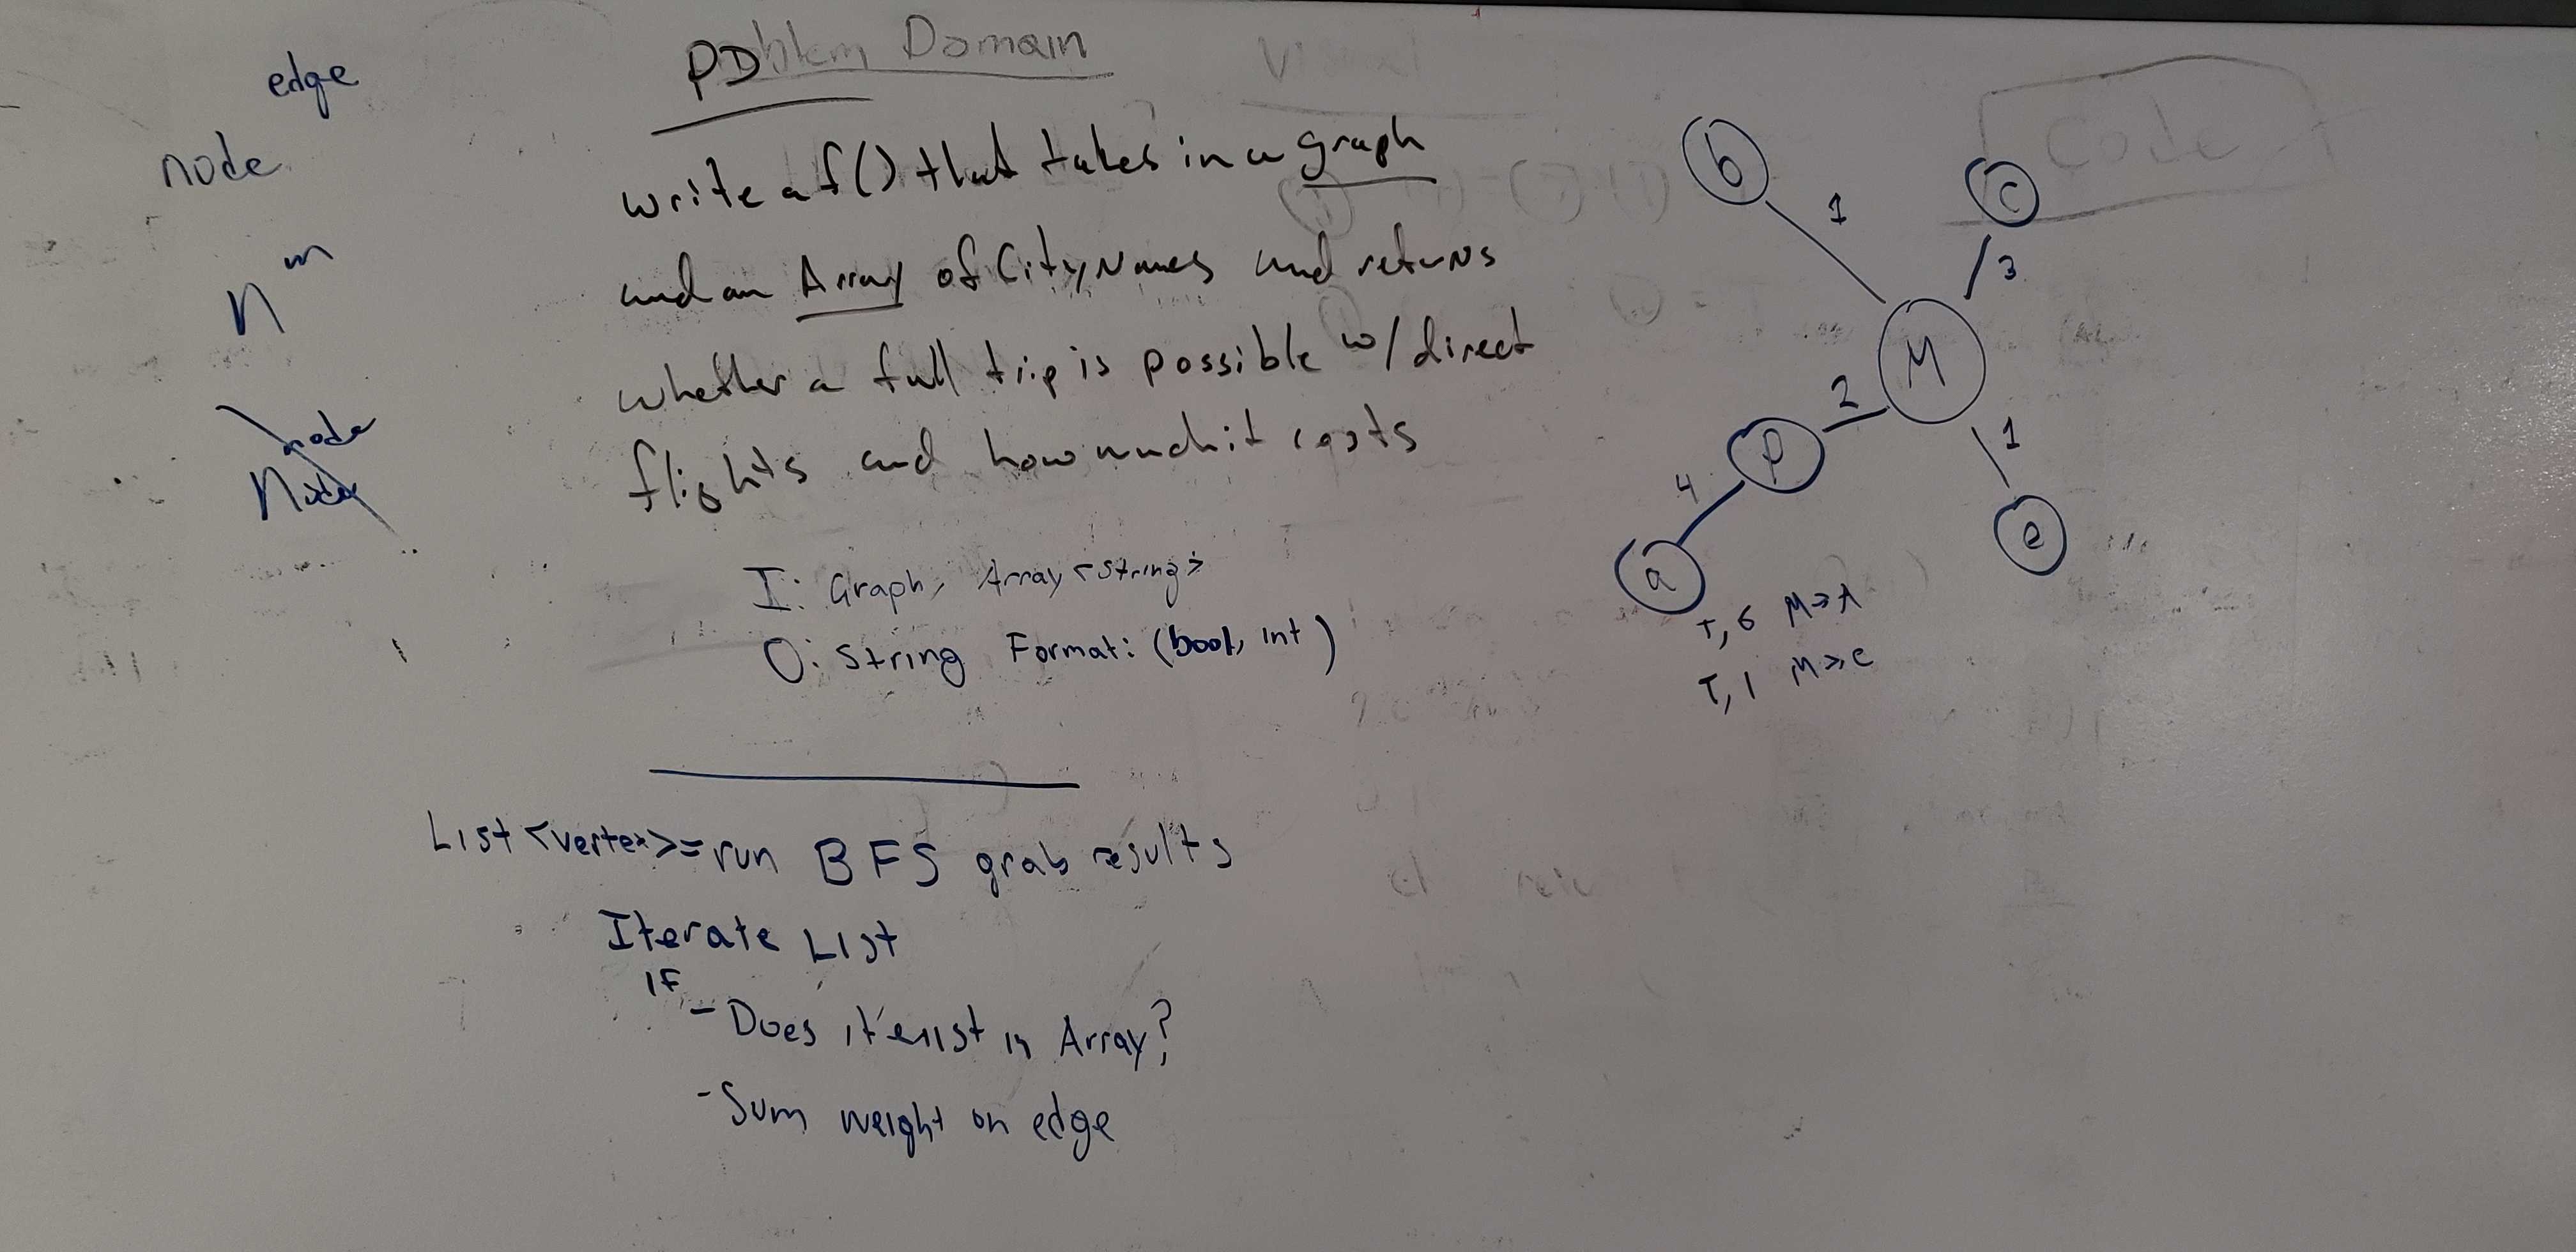 edge
node
n m
node
Node
PD blem Domain
Visual
Code
write a f() that takes in a graph
and an Array of City Names and returns
whether a full trip is possible w/ direct
flights and how much it costs
I: Graph, Array <string>
O: string Format: (bool, int)
List <vertex> = run BFS grab results
Iterate List
IF
- Does it exist in Array?
- Sum weight on edge
b
1
c
3
M
2
P
1
4
e
a
T, 6 M→A
T, 1 M→e